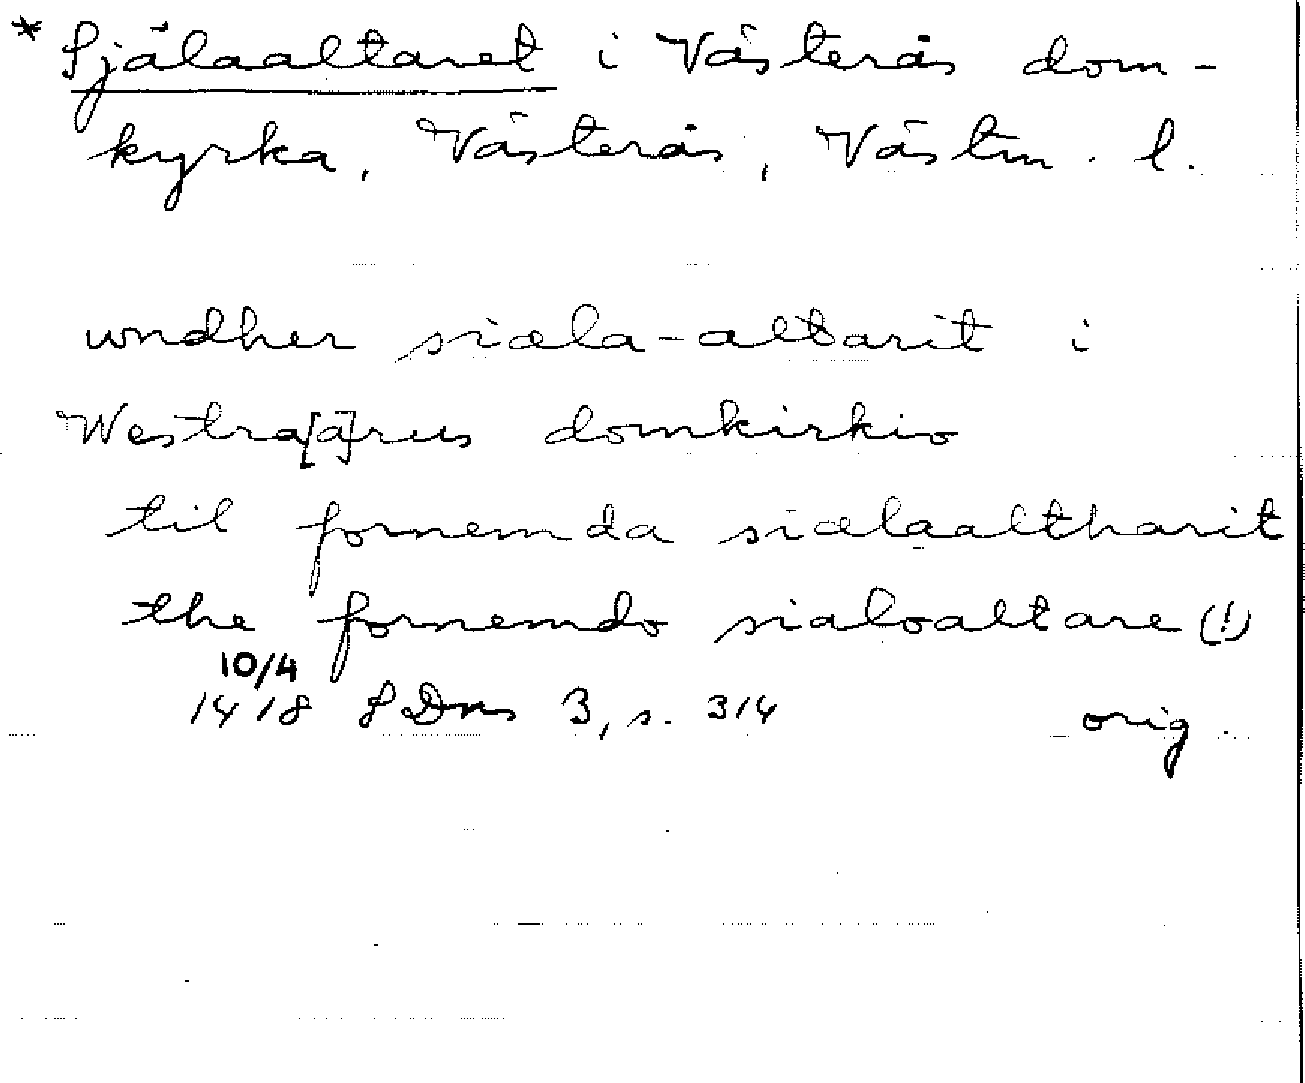 * Själaaltaret i Västerås dom-
kyrka, Västerås, Västm. l.
wndher siæla-altarit i
Westra[a]rus domkirkio
til fornemda siælaaltharit
the fornemdo sialoaltare (!)
10/4
1418 SDns 3, s. 314 orig.